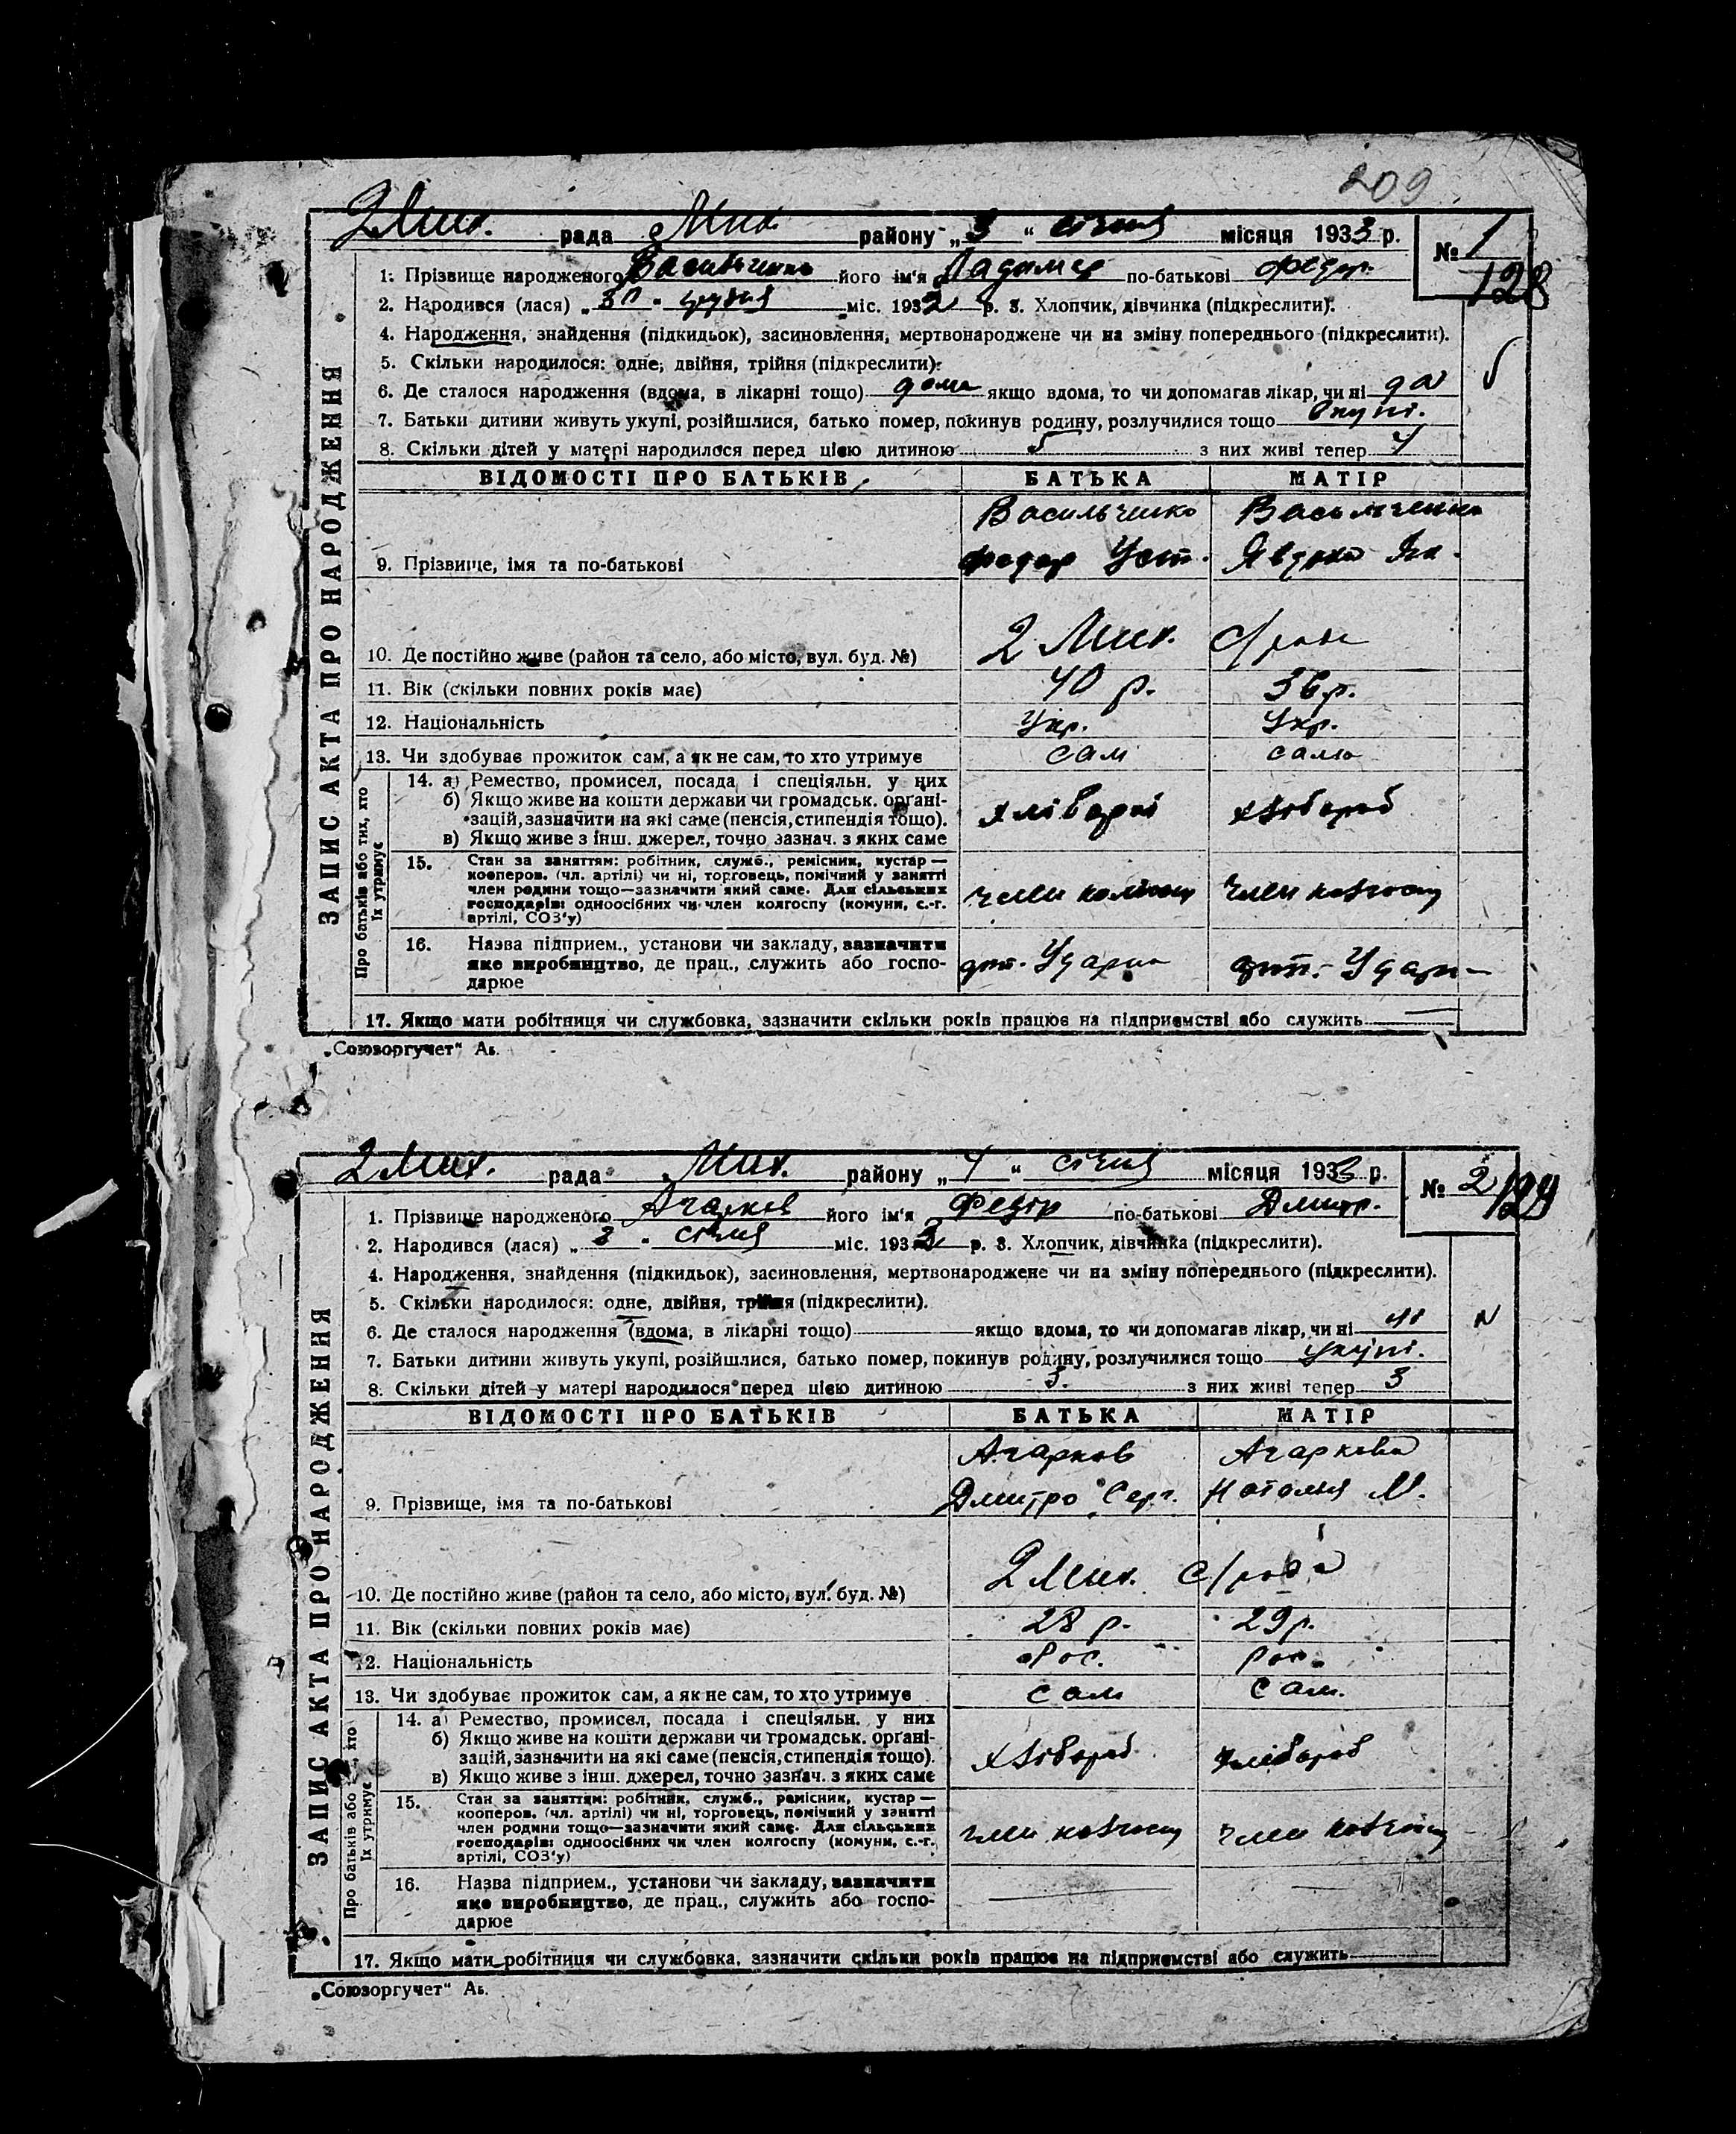 209
2 Мих. рада Мих. району „3“ січня місяця 1933 р. № 1
128
1. Прізвище народженого Васильченко його ім'я Ладимер по-батькові Федор.
2. Народився (лася) „30“ грудня міс. 1932 р. 3. Хлопчик, дівчинка (підкреслити).
4. Народження, знайдення (підкидьок), засиновлення, мертвонароджене чи на зміну попереднього (підкреслити).
5. Скільки народилося: одне, двійня, трійня (підкреслити).
6. Де сталося народження (вдома, в лікарні тощо) дома якщо вдома, то чи допомагав лікар, чи ні да
7. Батьки дитини живуть укупі, розійшлися, батько помер, покинув родину, розлучилися тощо Окупі.
8. Скільки дітей у матері народилося перед цією дитиною 5 з них живі тепер 4
ВІДОМОСТІ ПРО БАТЬКІВ БАТЬКА МАТІР
Васильченко Васильченко
9. Прізвище, імя та по-батькові Федор Уст. Явдоха
10. Де постійно живе (район та село, або місто, вул. буд. №) 2 Мих. с/рада
11. Вік (скільки повних років має) 40 р. 36 р.
12. Національність Укр. Укр.
13. Чи здобуває прожиток сам, а як не сам, то хто утримує сам сама
14. а) Ремество, промисел, посада і спеціяльн. у них
б) Якщо живе на кошти держави чи громадськ. органі-
зацій, зазначити на які саме (пенсія, стипендія тощо). хлібороб хлібороб
в) Якщо живе з інш. джерел, точно зазнач. з яких саме
15. Стан за заняттям: робітник, служб., ремісник, кустар —
кооперов. (чл. артілі) чи ні, торговець, помічний у занятті
член родини тощо—зазначити який саме. Для сільських
господарів: одноосібних чи член колгоспу (комуни, с.-г. член колгоспу член колгоспу
артілі, СОЗ'у)
16. Назва підприєм., установи чи закладу, зазначити
яке виробництво, де прац., служить або госпо- арт. Ударн арт. Ударн
дарює
17. Якщо мати робітниця чи службовка, зазначити скільки років працює на підприємстві або служить —
ЗАПИС АКТА ПРО НАРОДЖЕННЯ
Про батьків або тих, хто
їх утримує
„Союзоргучет“ Аь.
2 Мих. рада Мих. району „4“ січня місяця 1933 р. № 2
129
1. Прізвище народженого Агарков його ім'я Федір по-батькові Дмитр.
2. Народився (лася) „3“ січня міс. 1933 р. 3. Хлопчик, дівчинка (підкреслити).
4. Народження, знайдення (підкидьок), засиновлення, мертвонароджене чи на зміну попереднього (підкреслити).
5. Скільки народилося: одне, двійня, трійня (підкреслити).
6. Де сталося народження (вдома, в лікарні тощо) якщо вдома, то чи допомагав лікар, чи ні ні
7. Батьки дитини живуть укупі, розійшлися, батько помер, покинув родину, розлучилися тощо укупі.
8. Скільки дітей у матері народилося перед цією дитиною 3. з них живі тепер 3
ВІДОМОСТІ ПРО БАТЬКІВ БАТЬКА МАТІР
Агарков Агаркова
9. Прізвище, імя та по-батькові Дмитро Серг. Наталія М.
10. Де постійно живе (район та село, або місто, вул. буд. №) 2 Мих. с/рада
11. Вік (скільки повних років має) 28 р. 29 р.
12. Національність Рос. Рос.
13. Чи здобуває прожиток сам, а як не сам, то хто утримує сам сам.
14. а) Ремество, промисел, посада і спеціяльн. у них
б) Якщо живе на кошти держави чи громадськ. органі-
зацій, зазначити на які саме (пенсія, стипендія тощо). хлібороб хлібороб
в) Якщо живе з інш. джерел, точно зазнач. з яких саме
15. Стан за заняттям: робітник, служб., ремісник, кустар —
кооперов. (чл. артілі) чи ні, торговець, помічний у занятті
член родини тощо—зазначити який саме. Для сільських
господарів: одноосібних чи член колгоспу (комуни, с.-г. член колгоспу член колгоспу
артілі, СОЗ'у)
16. Назва підприєм., установи чи закладу, зазначити
яке виробництво, де прац., служить або госпо-
дарює
17. Якщо мати робітниця чи службовка, зазначити скільки років працює на підприємстві або служить
ЗАПИС АКТА ПРО НАРОДЖЕННЯ
Про батьків або хто
їх утримує
„Союзоргучет“ Аь.